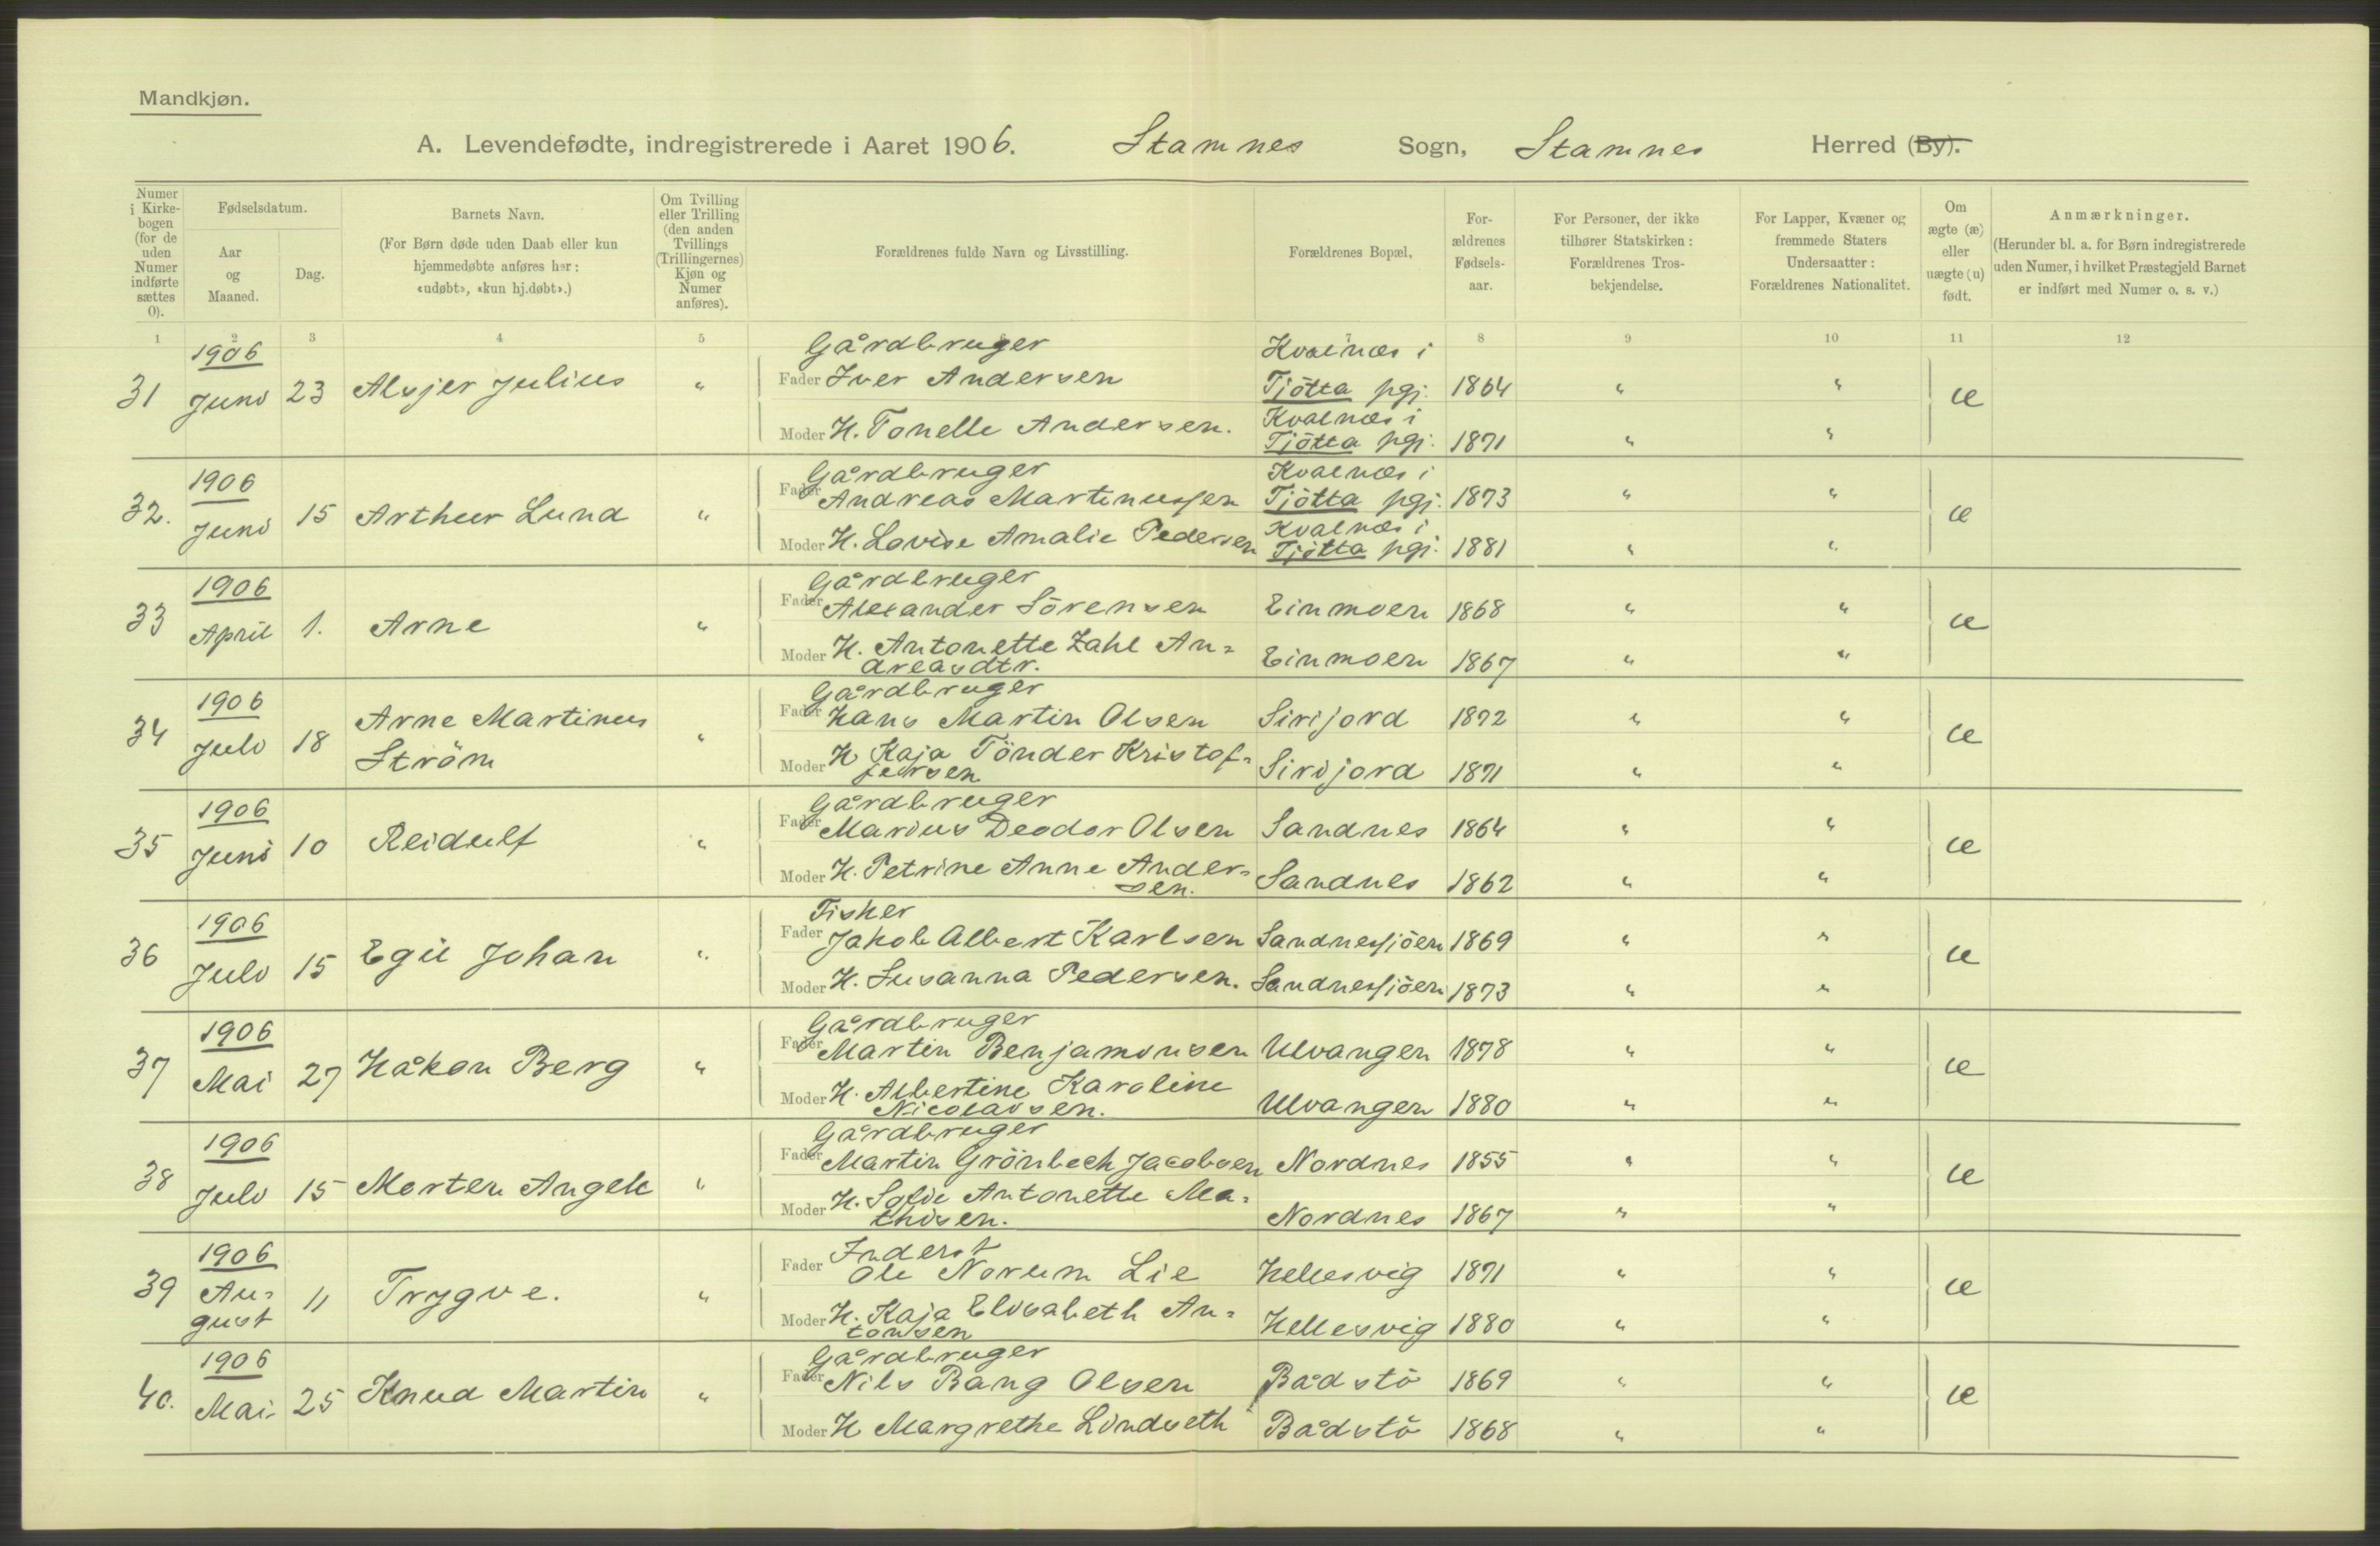 Mandkjøn.
A. Levendefødte, indregistrerede i Aaret 1906. Stamnes Sogn, Stamnes Herred (By).
Numer i Kirkebogen (for de uden Numer indførte sættes 0).
Fødselsdatum.
Aar og Maaned.
Dag.
Barnets Navn.
(For Børn døde uden Daab eller kun hjemmedøbte anføres her: «udøbt», «kun hj.døbt».)
Om Tvilling eller Trilling (den anden Tvillings (Trillingernes) Kjøn og Numer anføres).
Forældrenes fulde Navn og Livsstilling.
Forældrenes Bopæl,
Forældrenes Fødselsaar.
For Personer, der ikke tilhører Statskirken: Forældrenes Trosbekjendelse.
For Lapper, Kvæner og fremmede Staters Undersaatter: Forældrenes Nationalitet.
Om ægte (æ) eller uægte (u) født.
Anmærkninger.
(Herunder bl. a. for Børn indregistrerede uden Numer, i hvilket Præstegjeld Barnet er indført med Numer o. s. v.)
1 2 3 4 5 7 8 9 10 11 12
31 1906 Juni 23 Alsjer Julius "
Gårdbruger
Fader Iver Andersen Kvalnæs i Tjötta pgj. 1864 " " æ
Moder H. Tonelle Andersen. Kvalnæs i Tjötta pgj. 1871 " "
32. 1906 Juni 15 Arthur Lund "
Gårdbruger
Fader Andreas Martinussen Kvalnæs i Tjötta pgj. 1873 " " æ
Moder H. Lovise Amalie Pedersen Kvalnæs i Tjötta pgj. 1881 " "
33 1906 April 1. Arne "
Gårdbruger
Fader Alexander Sörensen Einmoen 1868 " " æ
Moder H. Antonette Zahl An=
dreasdtr. Einmoen 1867 " "
34 1906 Juli 18 Arne Martinus Ström "
Gårdbruger
Fader Hans Martin Olsen Sirijord 1872 " " æ
Moder H Kaja Tönder Kristof=
fersen Sirijord 1871 " "
35 1906 Juni 10 Reidulf "
Gårdbruger
Fader Marius Deodor Olsen Sandnes 1864 " " æ
Moder H. Petrine Anne Ander=
sen. Sandnes 1862 " "
36 1906 Juli 15 Egil Johan "
Fisker
Fader Jakob Albert Karlsen Sandnessjöen 1869 " " æ
Moder H. Susanna Pedersen. Sandnessjöen 1873 " "
37 1906 Mai 27 Håkon Berg "
Gårdbruger
Fader Martin Benjaminsen Ulvangen 1878 " " æ
Moder H. Albertine Karoline
Nicolaisen. Ulvangen 1880 " "
38 1906 Juli 15 Morten Angele "
Gårdbruger
Fader Martin Grönbech Jacobsen Nordnes 1855 " " æ
Moder H. Sofie Antonette Ma=
thisen. Nordnes 1867 " "
39 1906 Au=
gust 11 Trygve. "
Inderst
Fader Ole Norum Lie Hellesvig 1871 " " æ
Moder H. Kaja Elisabeth An=
tonsen Hellesvig 1880 " "
40. 1906 Mai 25 Knud Martin "
Gårdbruger
Fader Nils Bang Olsen Bådstö 1869 " " æ
Moder H Margrethe Lindseth Bådstö 1868 " "